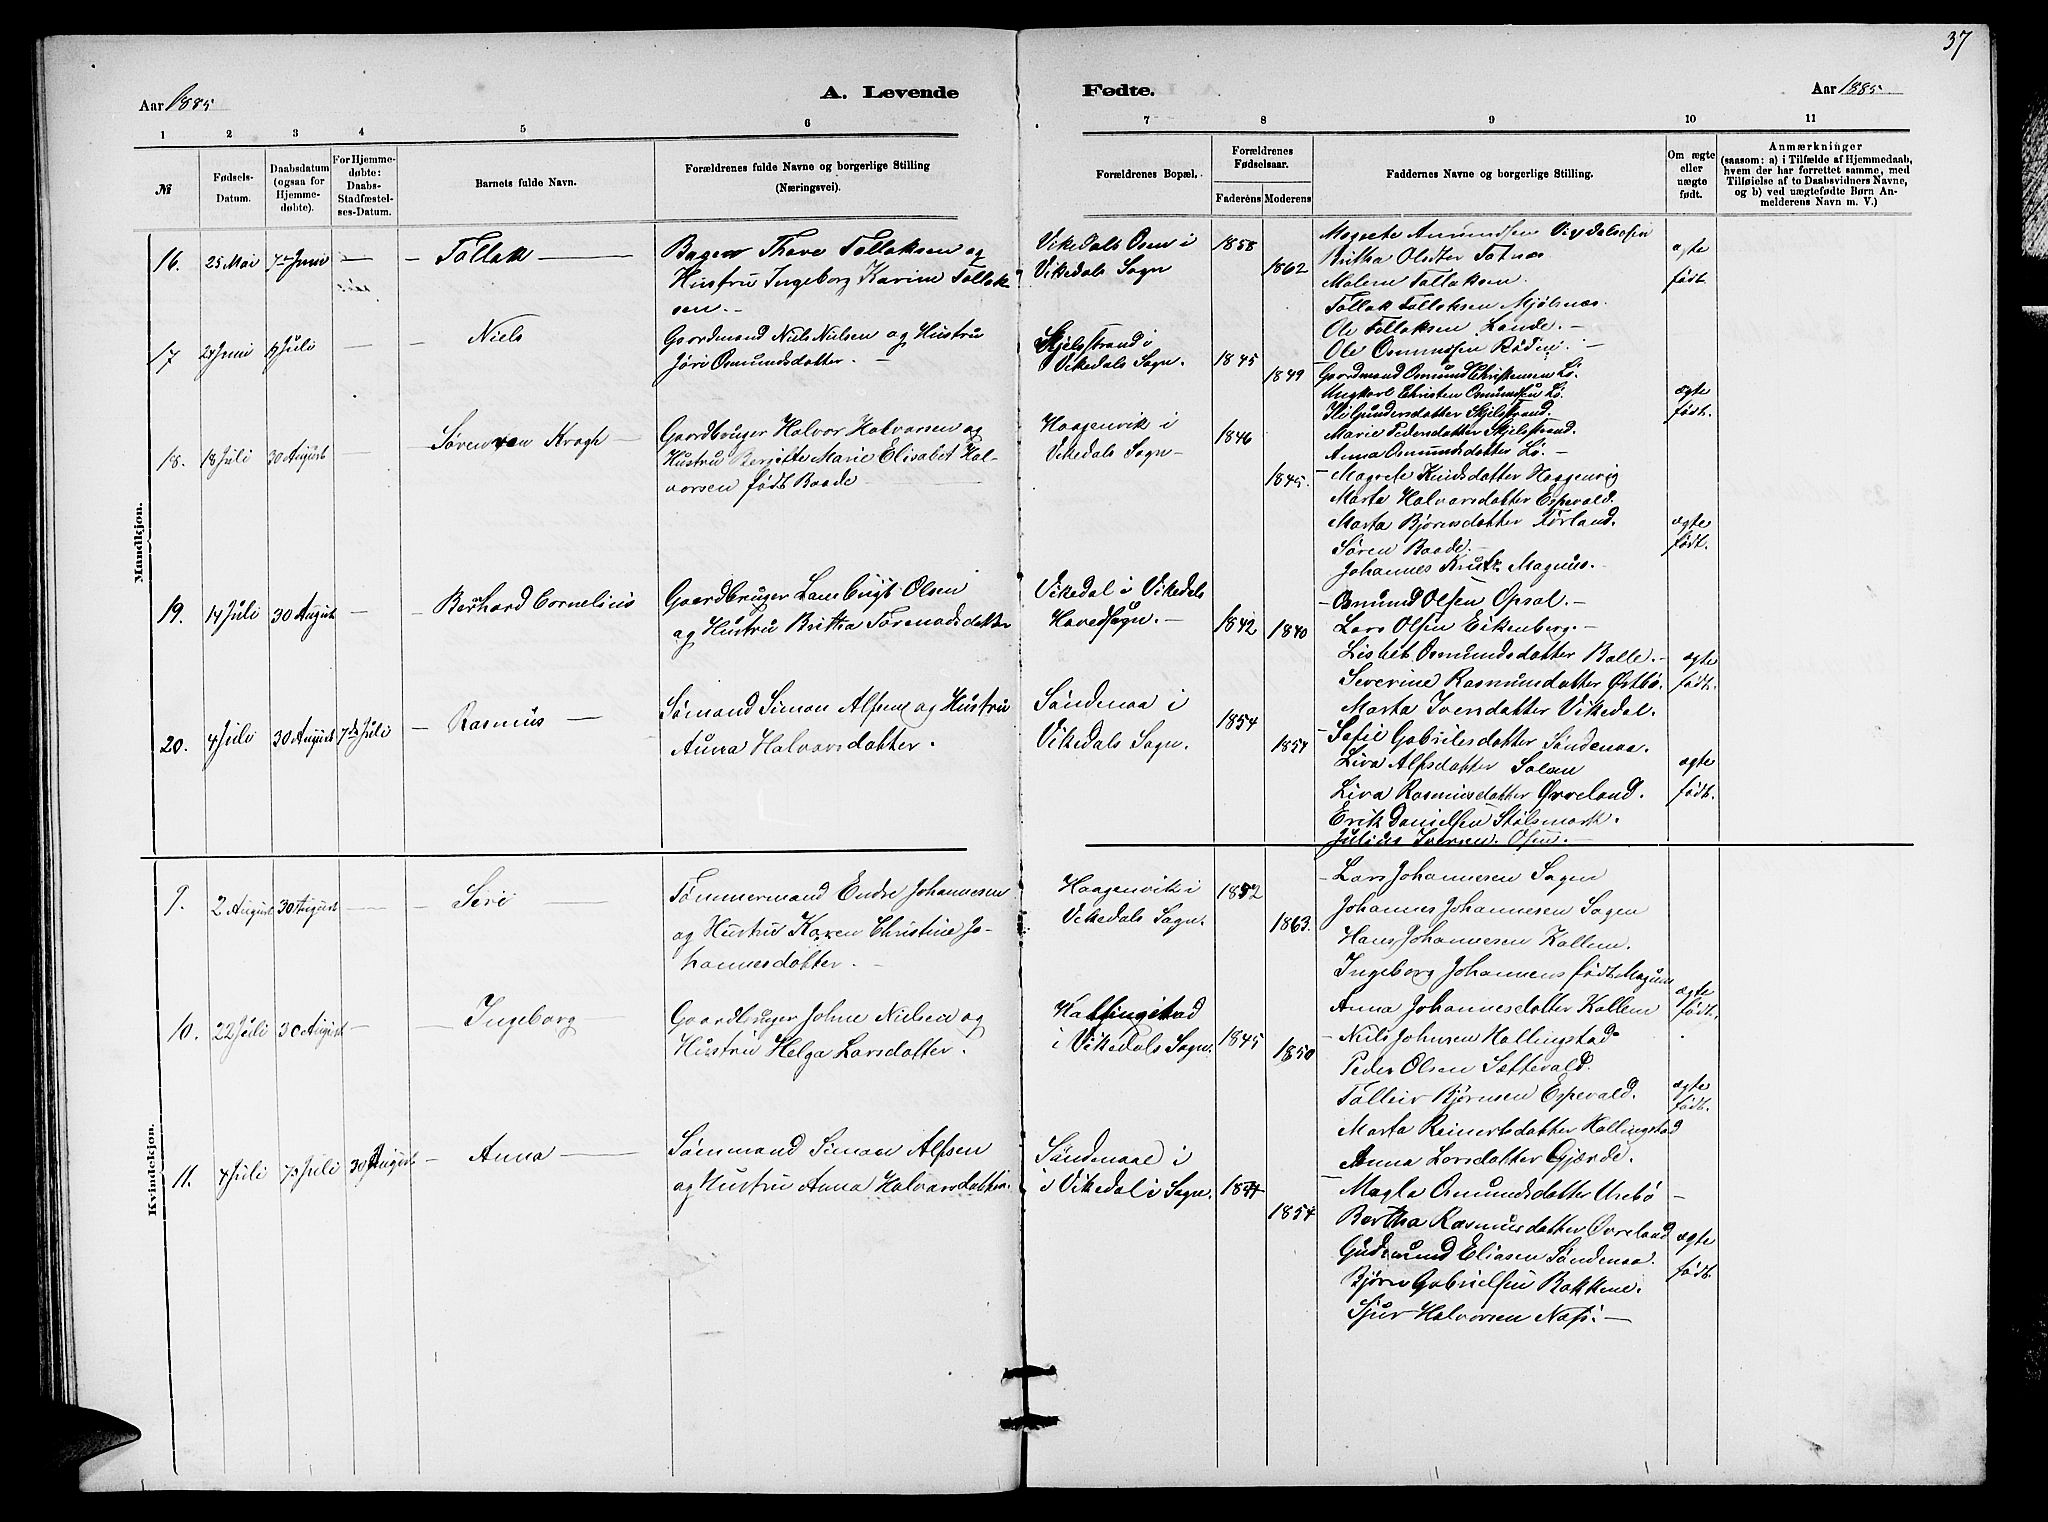 37
Aar 1885
A. Levende
Fødte.
Aar 1885
1 2 3 4 5 6 7 8 9 10 11
№
Fødsels-
Datum.
Daabsdatum
(ogsaa for
Hjemme-
døbte).
For Hjemme-
døbte:
Daabs-
Stadfæstel-
ses-Datum.
Barnets fulde Navn.
Forældrenes fulde Navne og borgerlige Stilling
(Næringsvei).
Forældrenes Bopæl.
Forældrenes
Fødselsaar.
Faderens Moderens
Faddernes Navne og borgerlige Stilling.
Om ægte
eller
uægte
født.
Anmærkninger
(saasom: a) i Tilfælde af Hjemmedaab,
hvem der har forrettet samme, med
Tilføielse af to Daabsvidners Navne,
og b) ved uægtefødte Børn An-
melderens Navn m. V.)
Mandkjøn.
16. 25 Mai 7de Juni — — Tollak —
Bager Thore Tollaksen og
Hustru Ingeborg Karine Tollak-
sen. —
Vikedals Osen i
Vikedals Sogn
1858
1862
Magrete Amundsen
Britha Olsdter
Malene Tollaksen.
Tollak Tollaksen Mjølsnæs.
Ole Tollaksen Lande. —
Ole Osmundsen
ægte
født.
17 Juni Juli — — Niels
Gaardmand Niels Nielsen og Hustru
Jøri Osmundsdatter. —
Skjelstrand i
Vikedals Sogn.
1845
1849
Gaardmand Osmund Christensen Lø.
Ungkarl Christen Osmundsen Lø.
Gundersdatter Skjelstrand.
Marie Pedersdatter Skjelstrand.
Anna Osmundsdatter Lø. —
ægte
født.
18. 18 Juli 30 August — — Søren von Krogh —
Gaardbruger Halvor Halvorsen og
Hustru Bergitte Marie Elisabet Hal-
vorsen født Baade —
Haagenvik i
Vikedals Sogn —
1846
1845.
— Magrete Knudsdatter Haagenvig
Marta Halvorsdatter Espevold.
Marta Bjørnsdatter Førland.
Søren Baade. —
Johannes Magnus. —
ægte
født.
19. 14 Juli 30 August — — Bernhard Cornelius
Gaardbruger Olsen
og Hustru Britha Tormodsdatter
Vikedal i Vikedals
Hovedsogn. —
1842
1840
— Osmund Olsen Opsal. —
Lars Olsen Eikenberg. —
Lisbet Osmundsdatter Balle. —
Severine Rasmusdatter Østbø.
Marta Ivensdatter Vikedal.
ægte
født.
20. 4 Juli 30 August 7de Juli — Rasmus —
Sømand Simon Alfsen og Hustru
Anna Halvorsdatter.
Søndenaa i
Vikedals Sogn.
1854
1854
— Sofie Gabrielsdatter Søndenaa.
Liva Alfsdatter
Liva Rasmusdatter Øvreland.
Erik Danielsen Stølsmark.
Julius Iversen. Osen. —
ægte
født.
Kvindekjøn.
9. 2 August 30 August — — Seri —
Tømmermand Endre Johannesen
og Hustru Karen Christine Jo-
hannesdatter. —
Haagenvik i
Vikedals Sogn.
1852
1863.
— Lars Johannesen Sagen
Johannes Johannesen Sagen
Hans Johannesen Kallem.
Ingeborg Johannens født Magnus
Anna Johannesdatter Kallem
ægte
født.
10. 22 Juli 30 August — — Ingeborg —
Gaardbruger Johne Nielsen og
Hustru Helga Larsdatter.
Hallingstad
i Vikedals Sogn.
1845
1850
— Nils Johnsen Hallingstad
Peder Olsen Sættevold.
Tolleiv Bjørnsen Espevold.
Marta Reinertsdatter Hallingstad
Anna Larsdatter Gjærde.
ægte
født.
11. 4 Juli 7de Juli 30 August — Anna —
Sømmand Simon Alfsen
og Hustru Anna Halvorsdatter.
Søndenaae i
i Vikedal i Sogn.
1854
— Magla Osmundsdatter Urebø —
Bertha Rasmusdatter Øvreland
Gudmund Eliasen Søndenaa.
Bjørn Gabrielsen Bakkene.
Sjur Halvorsen —
ægte
født.